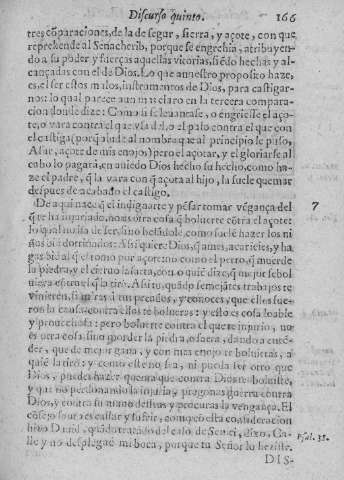 Discurso quinto. 166
tres cõparaciones, de la de segur, sierra, y açote, con que
reprehende al Senacherib, porque se engrehia, atribuyen-
do a su poder y fuerças aquellas vitorias, siẽdo hechas y al-
cançadas con el de Dios. Lo que a nuestro proposito haze,
es, el ser estos malos, instrumentos de Dios, para castigar-
nos: lo qual parece aun mas claro en la tercera compara-
cion donde dize: Como si se leuantasse, o engriesse el aço-
te, o vara contra el que vsa del, o el palo contra el que con
el castiga (porq̃ alude al nombre que al principio le puso,
Assur, açote de mis enojos) pero el açotar, y el gloriarse al
cabo lo pagarà, en auiedo Dios hecho su hecho, como ha-
ze el padre, q̃ la vara con q̃ açota al hijo, la suele quemar
despues de acabado el castigo.
De aqui nace, q̃ el indignarte y pẽsar tomar vẽgança del 7
q̃ te ha injuriado, no es otra cosa q̃ boluerte cõtra el açote:
lo qual no ha de ser, sino besandole, como suelẽ hazer los ni
ños biẽ dotrinados: Assi quiere Dios, q̃ ames, acaricies, y ha
gas biẽ al q̃ tomò por açote: no como el perro, q̃ muerde
la piedra, y el cieruo la saeta, con
viniessen, a tus pensares, y conoces, que ellas fue-
ron la causa, contra ellos te bolueras: y esto es cosa loable
y prouechosa: pero boluerte contra el que te injurio, no
es otra cosa, sino morder la piedra, o saeta, dando a entẽ-
der, que de mejor gana, y con mas enojo te boluieras, a
quiẽ la tirò: y como este no sea, ni pueda ser otro que
Dios, puedes hazer cuenta que contra Dios te boluiste,
y que no perdonando la injuria, pregonas guerra contra
Dios, y contra su mano dessiuas y procuras la vengança. El
cõsejo sano es callar y sufrir, como cõ esta consideracion
hizo Dauid, quãdo tratado del caso de Semei, dixo, Ca- Psal. 38.
lle y no desplegue mi boca, porque tu Señor lo heziste.
DIS-